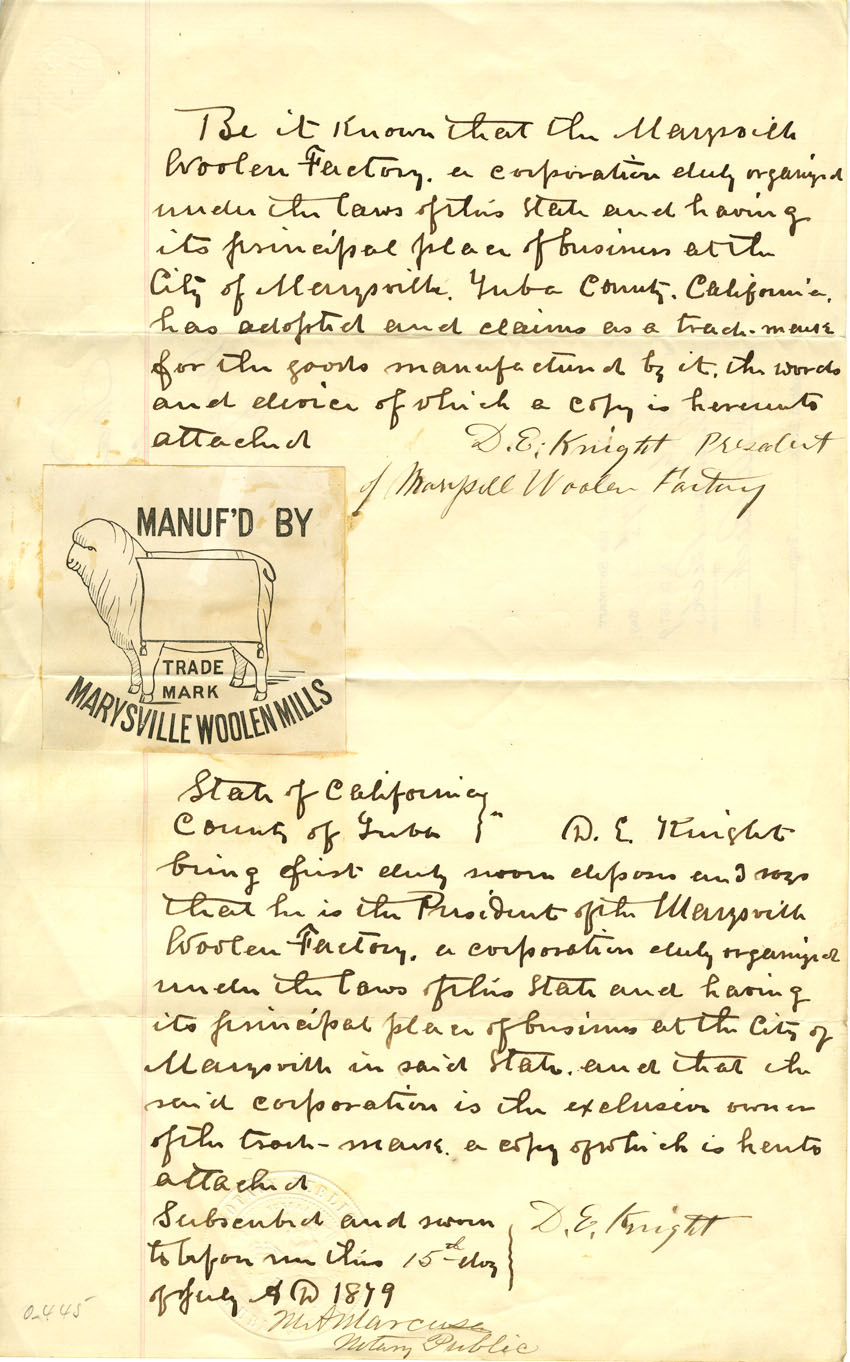 Be it Known that the Marysville
Woolen Factory, a corporation duly organized
under the laws of this State and having
its principal place of business at the
City of Marysville, Yuba County, California,
has adopted and claims as a trade-mark
for the goods manufactured by it, the words
and device of which a copy is hereunto
attached
D. E. Knight President
of Marysvill Woolen Factory
MANUF'D BY
TRADE
MARK
MARYSVILLE WOOLEN MILLS
State of California
County of Yuba } D. E. Knight
being first duly sworn deposes and says
that he is the President of the Marysville
Woolen Factory, a corporation duly organized
under the laws of this State and having
its principal place of business at the City of
Marysville in said State, and that the
said corporation is the exclusive owner
of the trade-mark, a copy of which is hereto
attached
Subscribed and sworn } D. E. Knight
to before me this 15th day
of July A D 1879
M. A. Marcuse
Notary Public
0-445